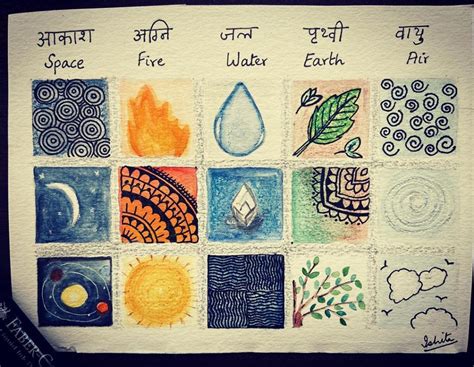 आकाश अग्नि जल पृथ्वी वायु
Space Fire Water Earth Air
FABER-C
Ishita